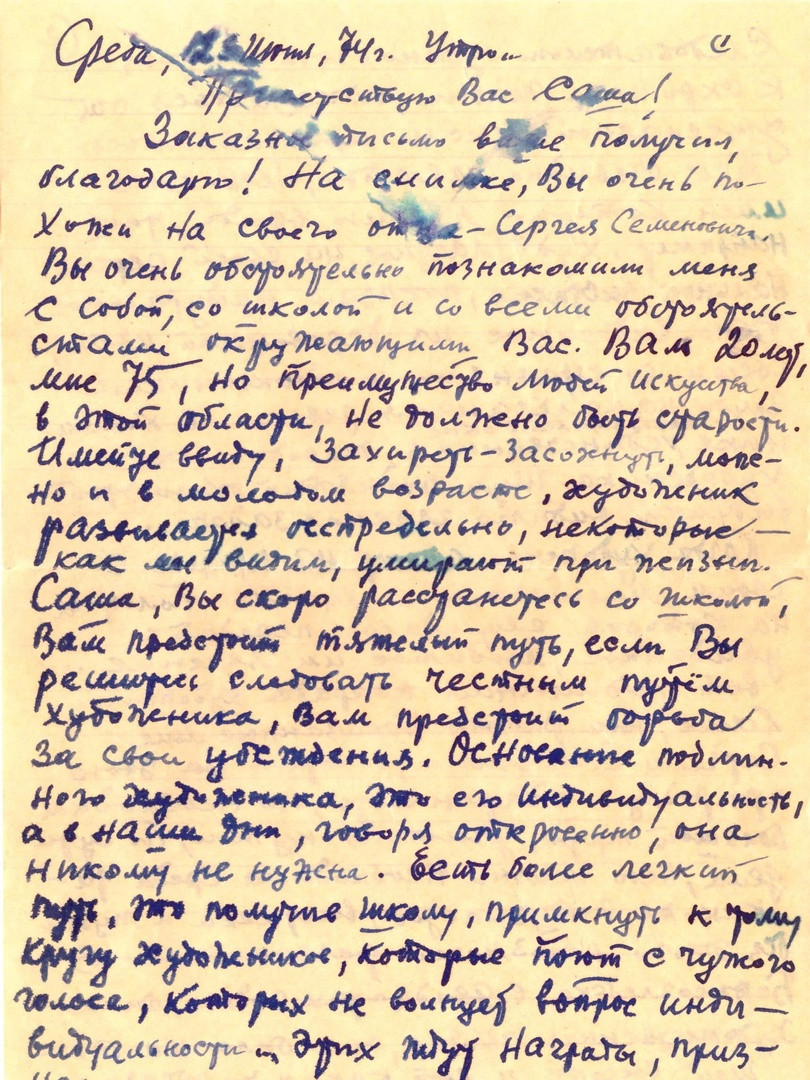 Среда, 12 Июня, 74г. Утро..
Приветствую Вас Саша!
Заказное письмо ваше получил,
благодарю! На снимке, Вы очень по-
хожи на своего отца – Сергея Семеновича.
Вы очень обстоятельно познакомили меня
с собой, со школой и со всеми обстоятель-
ствами окружающими Вас. Вам 20 лет,
мне 75, но преимущество людей искусства,
в этой области, не должно быть старости.
Имейте ввиду, захиреть – засохнуть, мож-
но и в молодом возрасте, художник
развивается беспредельно, некоторые –
как мы видим, умирают при жизни.
Саша, Вы скоро расстанетесь со школой,
Вам предстоит тяжелый путь, если Вы
решитесь следовать честным путём
художника, Вам предстоит борьба
за свои убеждения. Основание подлин-
ного художника, это его индивидуальность,
а в наши дни, говоря откровенно, она
никому не нужна. Есть более легкий
путь, это получив школу, примкнуть к тому
кругу художников, которые поют с чужого
голоса, которых не волнует вопрос инди-
видуальности.. Этих ждут награды, приз-